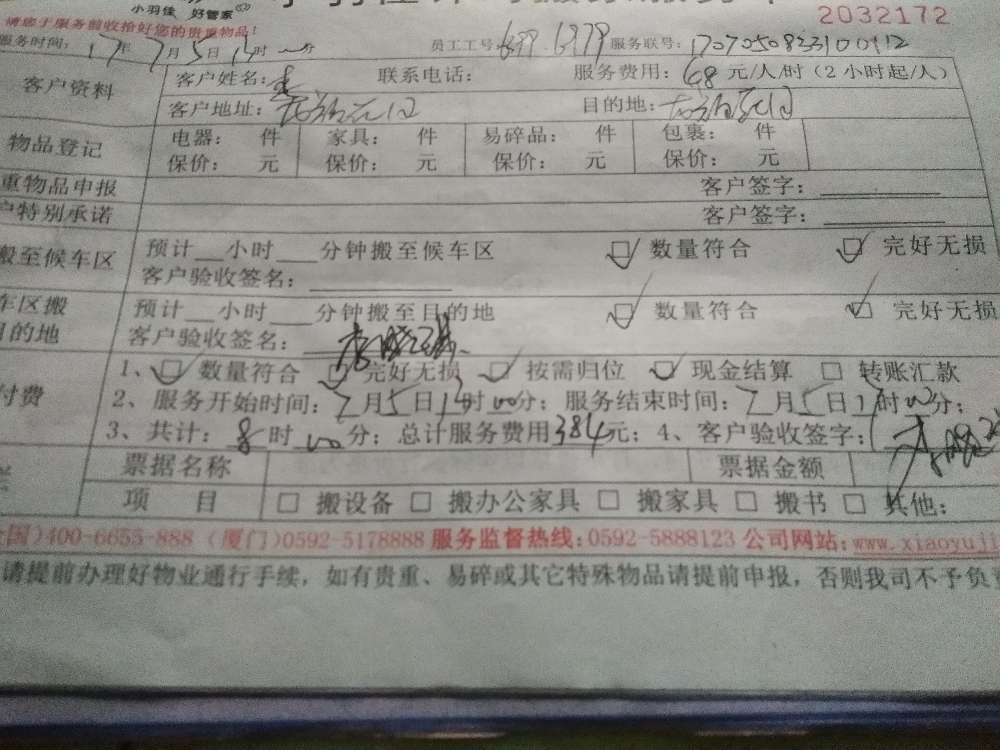 小羽佳 好管家
2032172
请您于服务前收拾好您的贵重物品!
服务时间: 17年7月5日13时 分 员工工号: 服务联号: 1707050823100112
客户资料 客户姓名: 联系电话: 服务费用: 68元/人/时(2小时起/人)
客户地址: 目的地:
物品登记 电器: 件 家具: 件 易碎品: 件 包裹: 件
保价: 元 保价: 元 保价: 元 保价: 元
重物品申报 客户签字:
户特别承诺 客户签字:
搬至候车区 预计__小时___分钟搬至候车区 ☑ 数量符合 ☑ 完好无损
客户验收签名:
车区搬 预计__小时___分钟搬至目的地 ☑ 数量符合 ☑ 完好无损
目的地 客户验收签名:
付费 1、☑ 数量符合 ☑ 完好无损 ☑ 按需归位 ☑ 现金结算 □ 转账汇款
2、服务开始时间: 7月5日13时00分; 服务结束时间: 7月5日 时00分;
3、共计: 8时00分; 总计服务费用384元; 4、客户验收签字:
票据名称 票据金额
项 目 □ 搬设备 □ 搬办公家具 □ 搬家具 □ 搬书 □ 其他:
国)400-6655-888 (厦门)0592-5178888 服务监督热线:0592-5888123 公司网站:www.xiaoyuji
请提前办理好物业通行手续,如有贵重、易碎或其它特殊物品请提前申报,否则我司不予负责